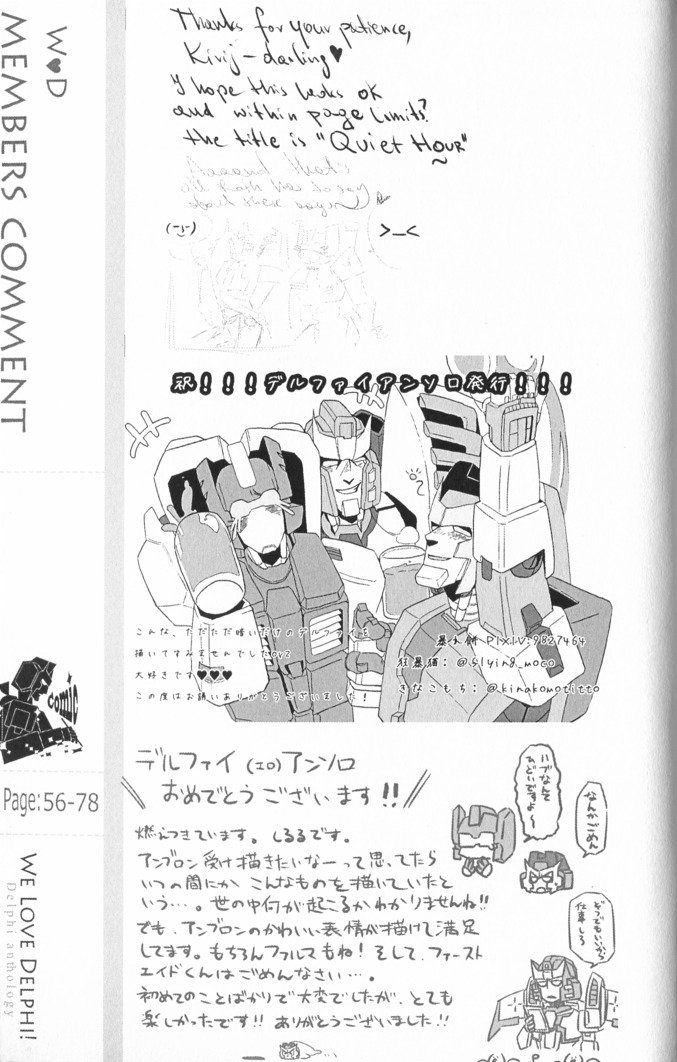 W♥D
MEMBERS COMMENT
Thanks for your patience,
Kivij-darling♥
I hope this looks ok
and within page limits?
the title is "Quiet Hour"
Aaaand that's
all
has to say
about
(-_-)
>_<
祝!!!デルファイアンソロ発行!!!
こんな、ただただ暗いだけのデルファイを
描いてすみませんでしたorz
大好きです♥♥♥
この度はお誘いありがとうございました!
PIXIV:9827464
狂暴猫:@flying_moco
きなこもち:@kinakomotitto
comic
Page:56-78
WE LOVE DELPHI!
Delphi anthology
デルファイ(エロ)アンソロ
おめでとうございます!!
燃えつきています。しるるです。
アンブロン受け描きたいなーって思ってたら
いつの間にかこんなものを描いていたと
いう…。世の中何が起こるかわかりませんね!!
でも、アンブロンのかわいい表情が描けて満足
してます。もちろんファルマもね!そして、ファースト
エイドくんはごめんなさい…。
初めてのことばかりで大変でしたが、とても
楽しかったです!!ありがとうございました!!
ハブなんて
ひどいですよ~
なんかごめん
どうでもいいから
仕事しろ